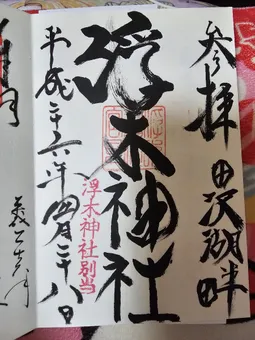 参拝 田沢湖畔
浮木神社
浮木神社別当
平成二十六年四月二十八日